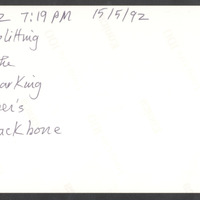 2 7:19 PM 15/5/92
plitting
the
arking
eer's
ackbone